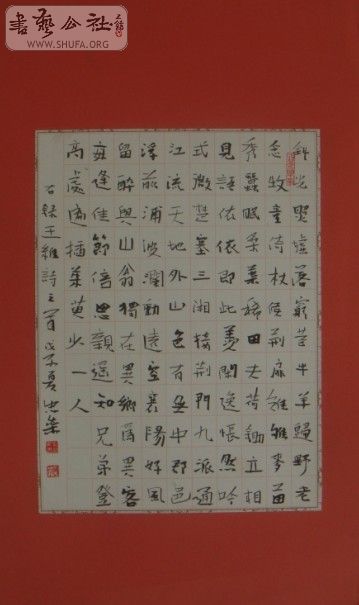 書藝公社
WWW.SHUFA.ORG
斜光照虛落窮巷牛羊歸野老
念牧童倚杖候荊扉雉雊麥苗
秀蠶眠桑葉稀田夫荷鋤立相
見語依依即此羨閑逸悵然吟
式微楚塞三湘接荊門九派通
江流天地外山色有無中郡邑
浮前浦波瀾動遠空襄陽好風
留醉與山翁獨在異鄉爲異客
每逢佳節倍思親遙知兄弟登
高處遍插茱萸少一人
右錄王維詩三首戊子夏